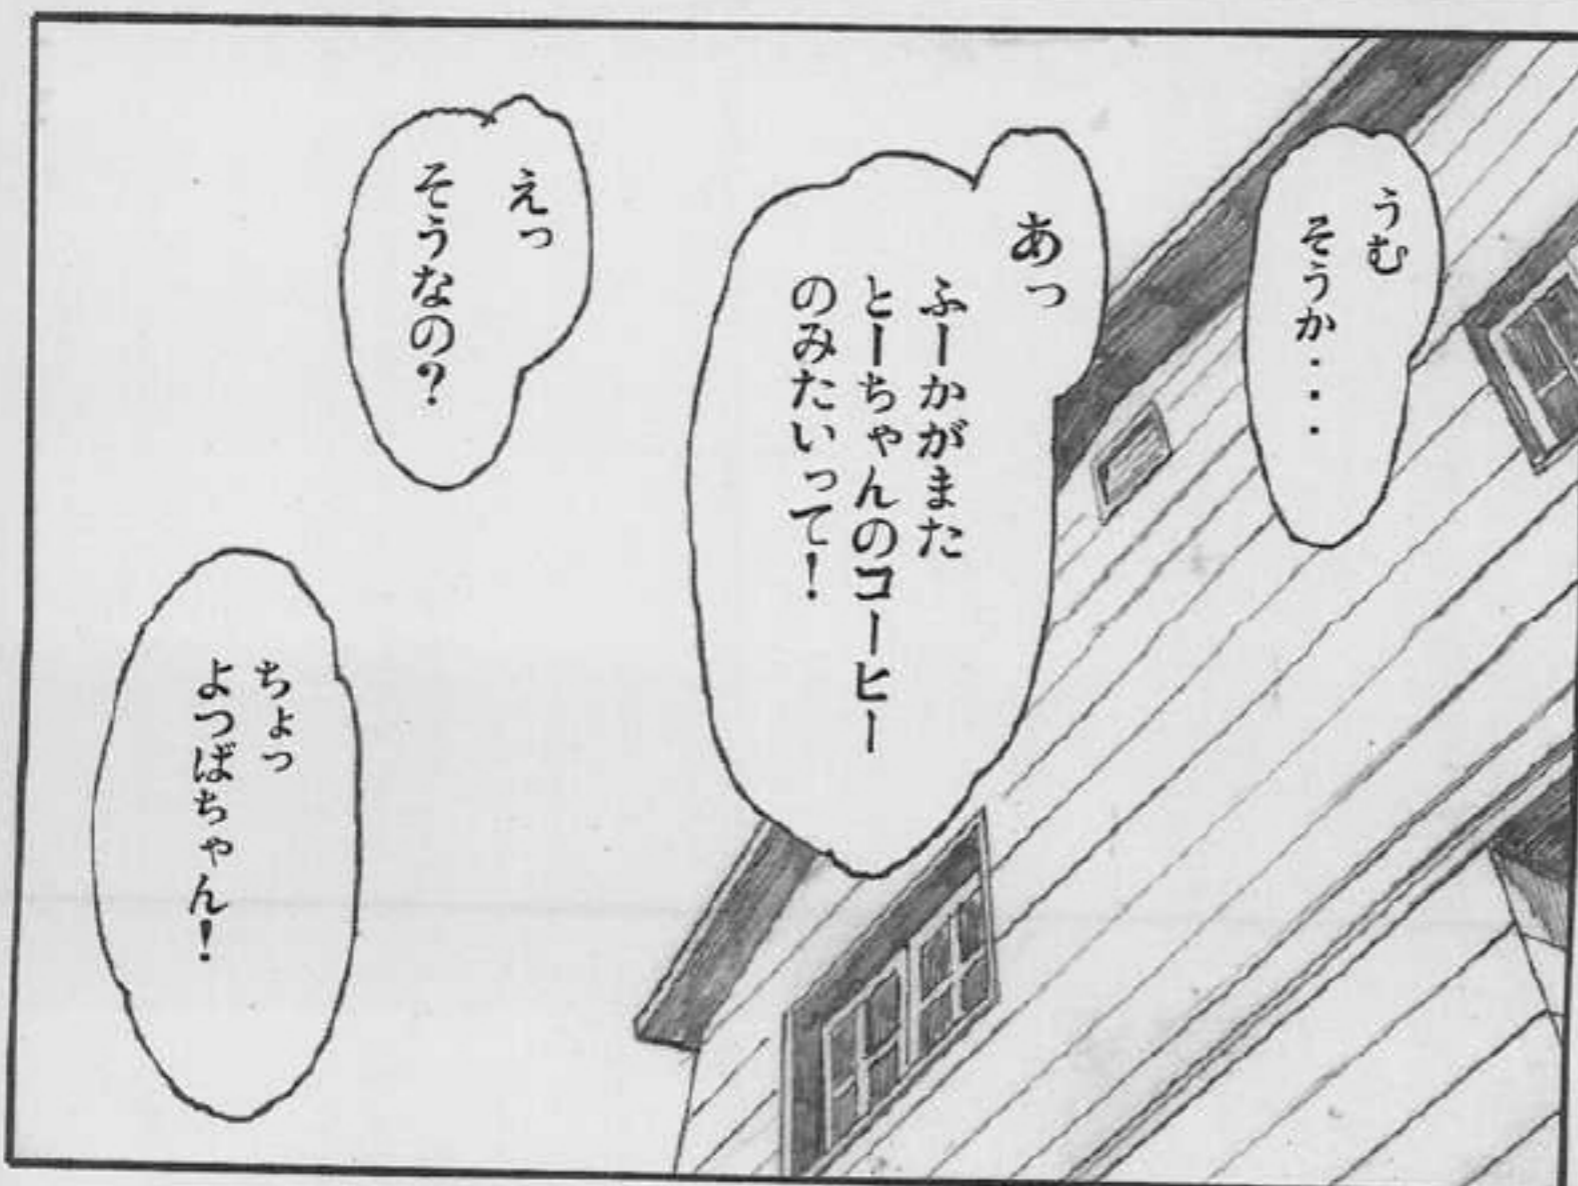 うむ
そうか・・・
あっ
ふーかがまた
とーちゃんのコーヒー
のみたいって！
えっ
そうなの？
ちょっ
よつばちゃん！